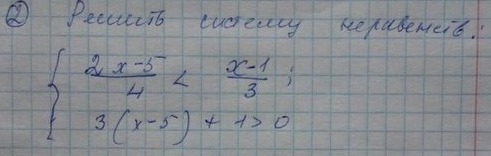 ② Решить систему неравенств:
{ (2x-5)/4 < (x-1)/3 ;
3(x-5) + 1>0